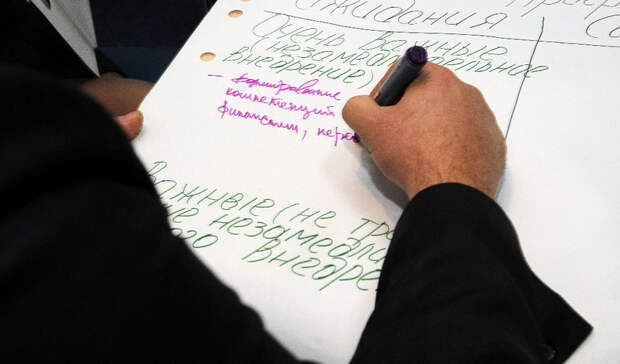 Ожидания
Очень важные
(незамедлительное
внедрение)
- формирование
компетенций
финансам, пер
Важные (не тре
ие незамедли
ого внедре